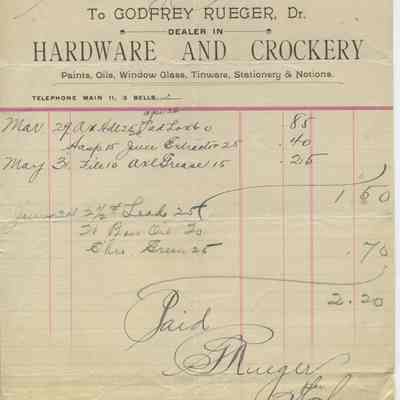 To GODFREY RUEGER, Dr.
DEALER IN
HARDWARE AND CROCKERY
Paints, Oils, Window Glass, Tinware, Stationery & Notions.
TELEPHONE MAIN 11, 3 BELLS.
Mar 29 Ax Hdl 25 Pad Lox 60 .85
Hasp 15 Juice Extractor 25 .40
May 3 File 10 Axl Grease 15 .25
1 50
June 24 2½# Leads 25
20
Green 25 .70
2.20
Paid
Rueger